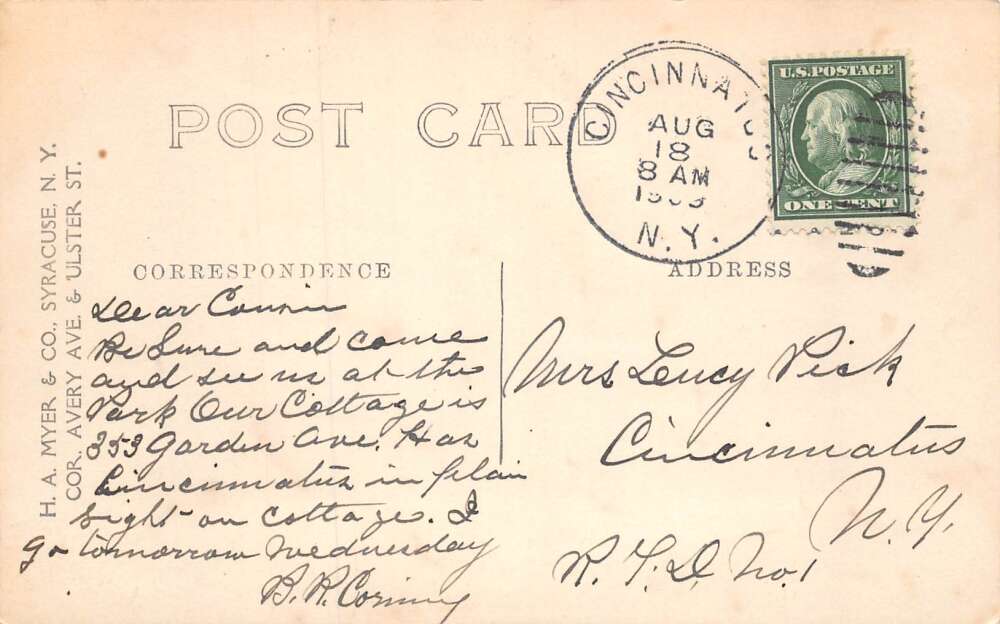 POST CARD
CINCINNATUS
AUG
18
8 AM
N.Y.
U.S. POSTAGE
ONE CENT
H. A. MYER & CO., SYRACUSE, N. Y.
COR. AVERY AVE. & ULSTER ST.
CORRESPONDENCE
Dear Cousin
Be Sure and come
and see us at the
Park Our Cottage is
353 Garden Ave. Has
Cincinnatus in plain
sight on cottage. I
go tomorrow Wednesday
B. R. Corning
ADDRESS
Mrs Lucy Pick
Cincinnatus
N. Y.
R. F. D. No. 1